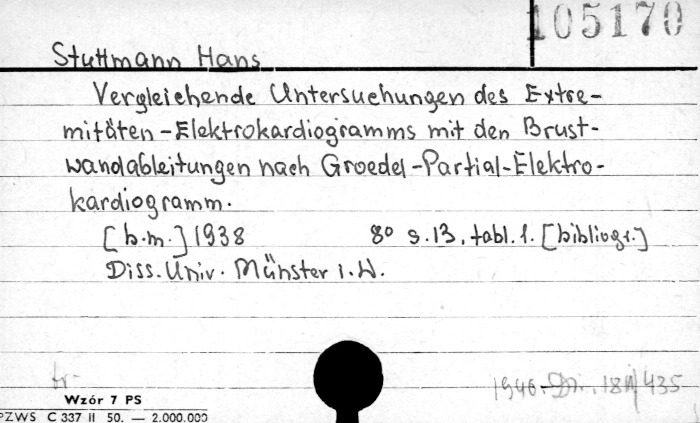 105170
Stuttmann Hans
Vergleichende Untersuchungen des Extre-
mitäten-Elektrokardiogramms mit den Brust-
wandableitungen nach Groedel-Partial-Elektro-
kardiogramm.
[b.m.] 1938 8° s.13, tabl.1. [bibliogr.]
Diss. Univ. Münster i.W.
tr.
1946. 435
Wzór 7 PS
PZWS C 337 II 50. — 2.000.000